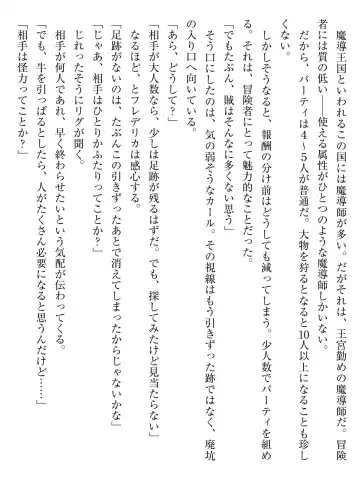 魔導王国といわれるこの国には魔導師が多い。だがそれは、王宮勤めの魔導師だ。冒険
者には質の低い──使える属性がひとつのような魔導師しかいない。
　だから、パーティは４～５人が普通だ。大物を狩るとなると10人以上になることも珍し
くない。
　しかしそうなると、報酬の分け前はどうしても減ってしまう。少人数でパーティを組め
る。それは、冒険者にとって魅力的なことだった。
「でもたぶん、賊はそんなに多くない思う」
　そう口にしたのは、気の弱そうなカール。その視線はもう引きずった跡ではなく、廃坑
の入り口へ向いている。
「あら、どうして？」
「相手が大人数なら、少しは足跡が残るはずだ。でも、探してみたけど見当たらない」
　なるほど、とフレデリカは感心する。
「足跡がないのは、たぶんこの引きずったあとで消えてしまったからじゃないかな」
「じゃあ、相手はひとりかふたりってことか？」
　じれったそうにリグが聞く。
　相手が何人であれ、早く終わらせたいという気配が伝わってくる。
「でも、牛を引っぱるとしたら、人がたくさん必要になると思うんだけど……」
「相手は怪力ってことか？」